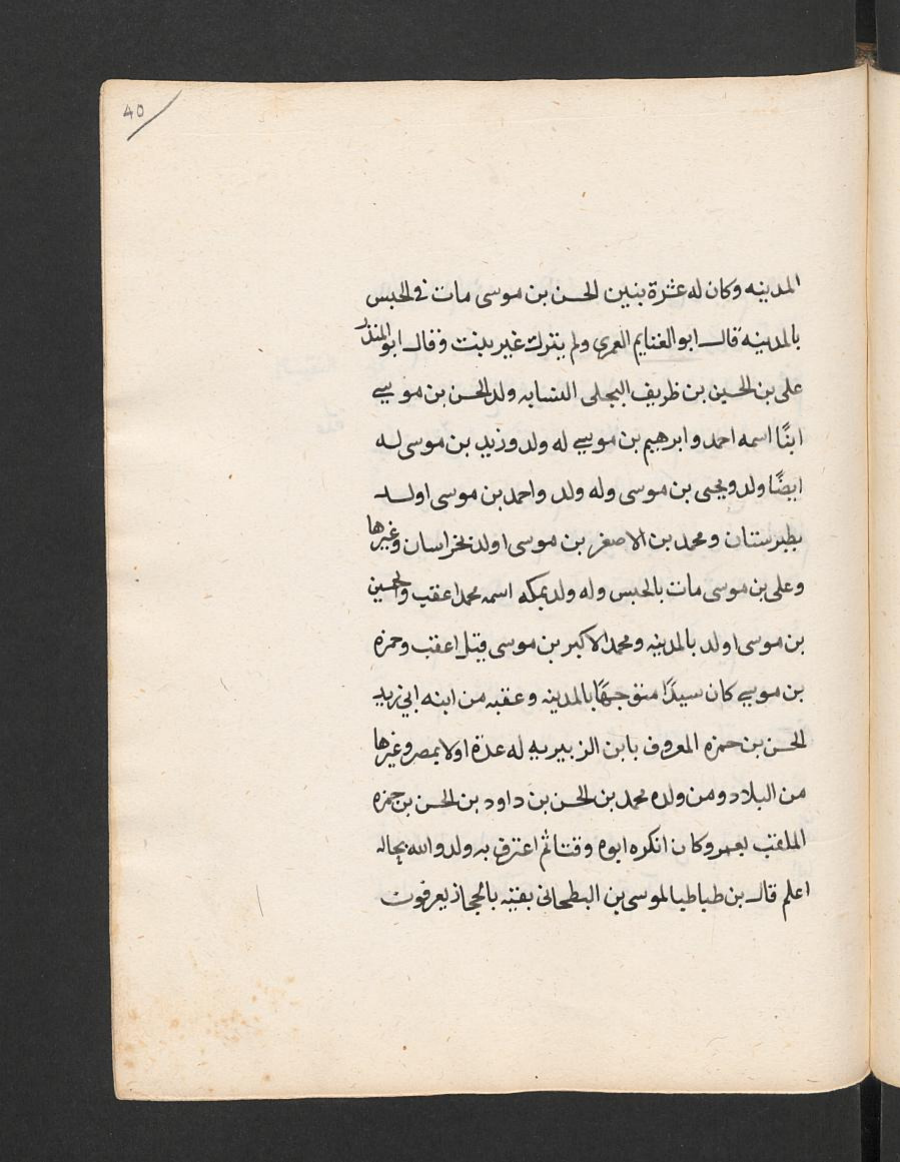 40
المدينه وكان له عشرة بنين الحسن بن موسى مات في الحبس
بالمدينه قال ابو الغنايم العمرى ولم يترك غير بنت وقال ابو المنذر
على بن الحسين بن ظريف البجلى النسابه ولد الحسن بن موسى
ابنًا اسمه احمد وابرهيم بن موسى له ولد وزيد بن موسى له
ايضًا ولد ويحيى بن موسى وله ولد واحمد بن موسى اولد
بطبرستان ومحمد بن الاصغر بن موسى اولد بخراسان وغيرها
وعلى بن موسى مات بالحبس وله ولد بمكه اسمه محمد اعقب والحسين
بن موسى اولد بالمدينه ومحمد الاكبر بن موسى قيل اعقب وحمزه
بن موسى كان سيدًا متوجهًا بالمدينه وعقبه من ابنه ابي زيد
الحسن بن حمزه المعروف بابن الزبيريه له عدة اولاد بمصر وغيرها
من البلاد ومن ولده محمد بن الحسن بن داود بن الحسن بن حمزه
الملقب بعمر وكان انكره ابوه وقتا ثم اعترف به ولد والله بحاله
اعلم قال بن طباطبا لموسى بن البطحانى بقيه بالحجاز يعرفون